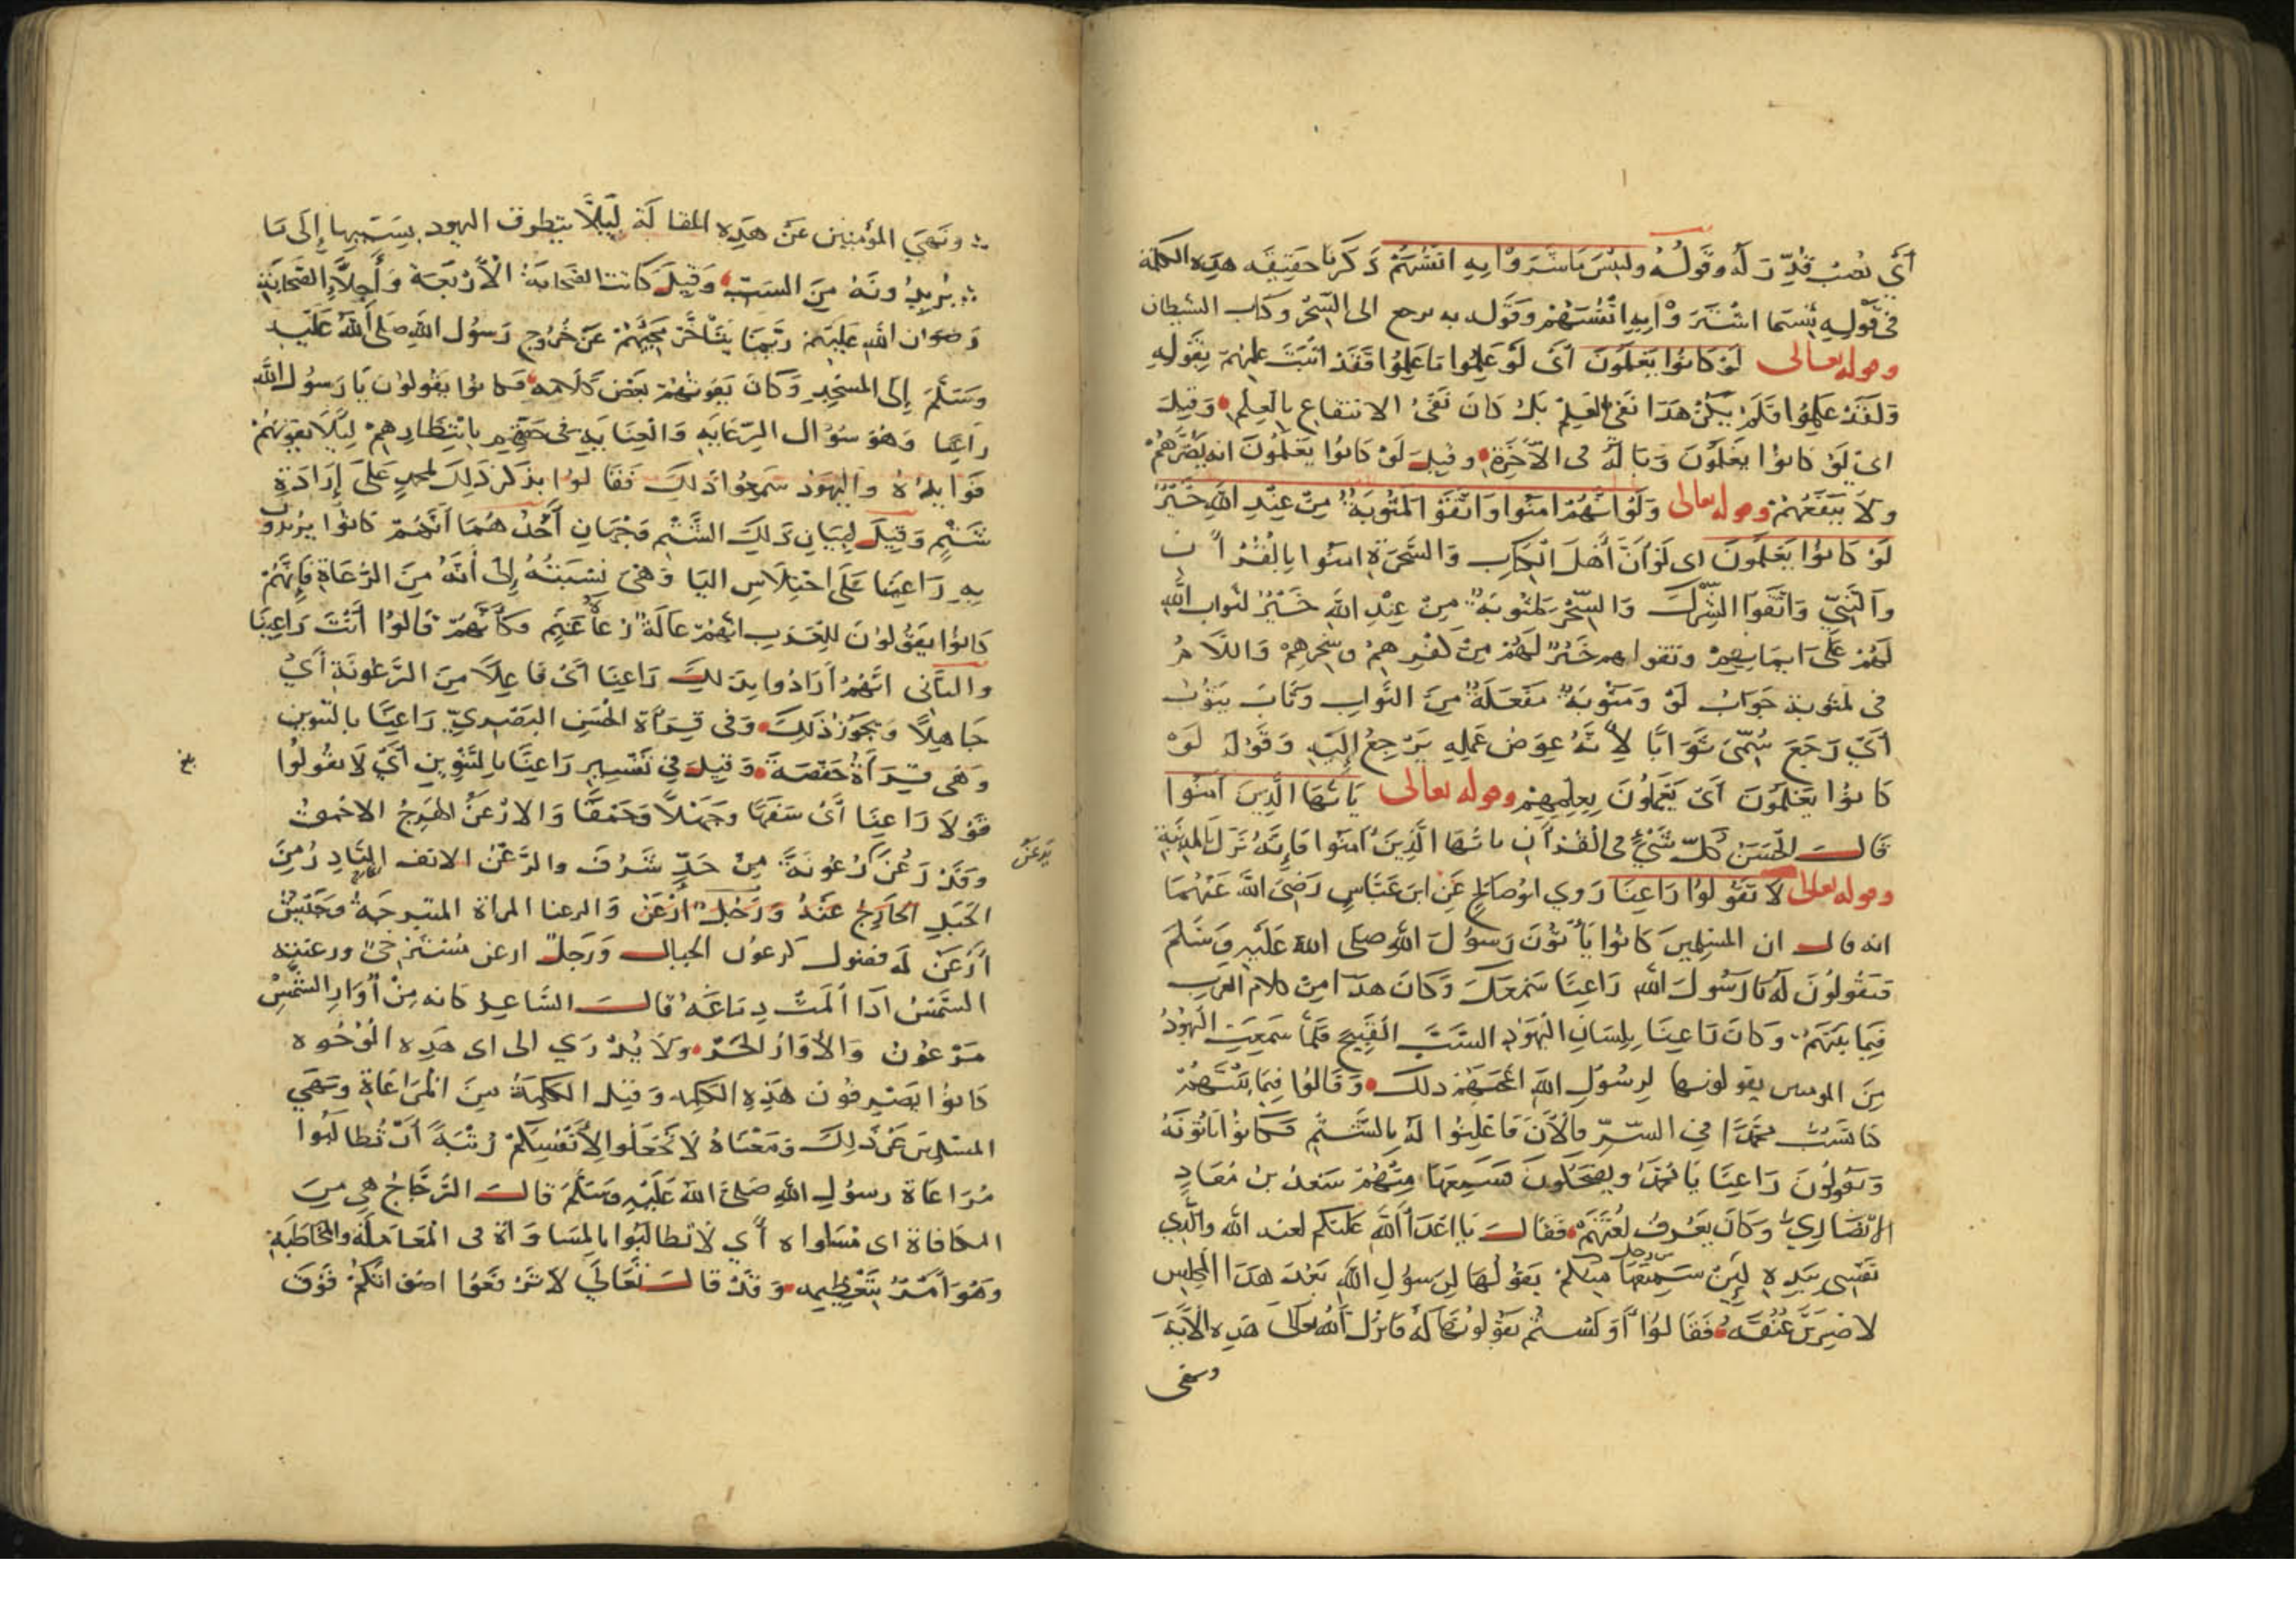 أي نصيب قُدِّرَ لَه وقَولُهُ ولبئس ما شَرَوْا بِهِ انفُسَهُمْ ذكرنا حقيقة هذه الكلمة
في قَولِهِ بئسما اشتَرَوْا بِهِ انفُسَهُمْ وقوله به يرجع الى السحر وكتاب الشيطان
وقوله تعالى لَوْ كَانُوا يَعْلَمُونَ أَيْ لَوْ عَلِمُوا مَا عَلِمُوا فَقَدْ أثبَتَ علمهم بِقَولِهِ
وَلَقَدْ عَلِمُوا فَلَمْ يَكُنْ هَذَا نَفْيَ العِلْمِ بَلْ كَانَ نَفْيَ الانتفاع بالعِلْمِ وَقِيلَ
اي لَوْ كَانُوا يَعْلَمُونَ وَبَالَهُ في الآخِرَةِ وقيلَ لَوْ كَانُوا يَعْلَمُونَ انه يَضُرُّهُمْ
ولَا يَنْفَعُهُمْ وقوله تعالى وَلَوْ انَّهُمْ امَنُوا وَاتَّقَوْا لَمَثُوبَةٌ مِنْ عِنْدِ اللَّهِ خَيْرٌ
لَوْ كَانُوا يَعْلَمُونَ اى لَوْ أَنَّ أَهْلَ الكِتَابِ وَالسَّحَرَةِ امَنُوا بِالْقُرْآنِ
وَالنَّبِيِّ وَاتَّقَوْا الشِّرْكَ وَالسِّحْرَ لَمَثُوبَةٌ مِنْ عِنْدِ اللَّهِ خَيْرٌ لثواب الله
لَهُمْ عَلَى ايمَانِهِمْ وتقواهم خَيْرٌ لَهُمْ مِنْ كُفْرِهِمْ وسِحْرِهِمْ وَاللَّامُ
في لمَثُوبة جَوَابُ لَوْ وَمَثُوبَةٌ مَفْعَلَةٌ مِنَ الثَّوابِ وَثَابَ يَثُوبُ
أَيْ رَجَعَ سُمِّيَ ثَوَابًا لِأَنَّهُ عِوَضُ عَمَلِهِ يَرْجِعُ إِلَيْهِ وَقَوْلُهُ لَوْ
كَانُوا يَعْلَمُونَ أَيْ يَعْمَلُونَ بِعِلْمِهِمْ وقوله تعالى يَا أَيُّهَا الَّذِينَ آمَنُوا
قَالَ الحَسَنُ كُلُّ شَيْءٍ في القُرْآنِ يا أَيُّهَا الَّذِينَ آمَنُوا فَإِنَّهُ نَزَلَ بالمدينَةِ
وقوله تعالى لَا تَقُولُوا رَاعِنَا رَوَى ابُو صَالِحٍ عَنِ ابنِ عَبَّاسٍ رَضِيَ اللَّهُ عَنْهُمَا
انه قال ان المسْلِمِينَ كَانُوا يَأْتُونَ رَسُولَ اللَّهِ صَلَى اللَّهُ عَلَيْهِ وَسَلَّمَ
فيَقُولُونَ لَهُ يا رَسُولَ اللَّهِ رَاعِنَا سَمْعَكَ وَكَانَ هذا مِنْ كلام العَرَبِ
فِيمَا بَيْنَهُمْ وَكَانَ رَاعِنَا بِلِسَانِ الْيَهُودِ السَّبَّ القَبِيحَ فَلَمَّا سَمِعَتِ اليَهُودُ
مِنَ المومنين يقولونها لِرسُولِ اللَّهِ اعْجَبَهُمْ ذلك وَقَالُوا فِيمَا بَيْنَهُمْ
كنا نَسُبُّ مُحَمَّدًا في السِّرِّ فالْآنَ فَاعْلِنُوا لَهُ بِالشَّتْمِ فكَانُوا يَأْتُونَهُ
وَيَقُولُونَ رَاعِنَا يَا مُحَمَّدُ ويَضْحَكُونَ فَسَمِعَهَا مِنْهُمْ سَعْدُ بْنُ مُعَاذٍ
الانْصَارِيُّ وَكَانَ يَعْرِفُ لُغَتَهُمْ فَقَالَ يا أعْدَاءَ اللَّهِ عَلَيْكُمْ لعنة اللَّه والَّذِي
نَفْسِي بِيَدِهِ لَئِنْ سَمِعْتُهَا مِنْ رجل منكم يَقُولُهَا لِرَسُولِ اللَّهِ بَعْدَ هَذَا المَجلِس
لَاضْرِبَنَّ عُنُقَهُ فَقَالُوا أَوَ لَسْتُمْ تَقُولُونَهَا لَهُ فَانْزَلَ اللَّهُ تعالى هَذِهِ الآيَةَ
ونهى
ونَهَى المؤمنين عَنْ هَذِهِ المقالَةِ لِئَلَّا يتطرق اليهود بسَبَبِها إِلَى مَا
يُرِيدُونَهُ مِنَ السَبِّ وَقِيلَ كانت الصَحَابَةُ الْأرْبَعَة وَأَجِلَّاءِ الصَّحَابَةِ
رضوان الله عَلَيْهِمْ رُبَّمَا يَتَأَخَّرُ مَجِيئُهُمْ عَنْ خُرُوجِ رَسُول اللَّه صَلَى اللَّهُ عَلَيْهِ
وَسَلَّمَ إِلَى المَسْجِدِ وَكَانَ يَفُوتُهُمْ بَعْضُ كَلَامِهِ فكانوا يَقُولُونَ يَا رَسُولَ اللَّهِ
رَاعِنَا وَهُوَ سُؤَالُ الرِّعَايَةِ وَالْعِنَايَةِ في حَقِّهِمْ بانْتِظَارِهِمْ لِئَلَّا يَفُوتَهُمْ
فوائدُهُ واليهود سَمِعُوا ذلكَ فَقَالوا بذكر ذَلِكَ لمحمد عَلَى إِرَادَةِ
شَتْمٍ وَقِيلَ لِبَيَانِ ذَلِكَ الشَّتْمِ وَجْهَانِ أَحَدُ هُمَا أَنَّهُمْ كَانُوا يُرِيدُونَ
بِهِ رَاعِينَا عَلَى اخْتِلَاسِ اليَا وَهْيَ نِسْبَتُهُ إِلى أَنَّهُ مِنَ الرُّعَاةِ فَإِنَّهُمْ
كَانُوا يَقُولُونَ لِلْعَرَبِ انهُمْ عَالَةٌ رُعَاةُ غَنَمٍ وَكَأَنَّهُمْ قَالُوا أَنْتَ رَاعِينَا
والثَّانِي انَّهُمْ أَرَادُوا بِذلكَ رَاعِنَا أَيْ فَاعِلًا مِنَ الرُّعُونَةِ أَيْ
جَاهِلًا وَيَجُوزُ ذَلِكَ وَفِي قِرَأَةِ الحَسَنِ البَصْرِيِّ رَاعِنًا بالتَّنْوِينِ
وَهْيَ قِرَأَةُ حَفْصَةَ وَقِيلَ في تَفْسِيرِ رَاعِنًا بالتَّنْوِينِ أَيْ لَا تَقُولُوا
قَوْلًا رَاعِنًا أَيْ سَفَهًا وَجَهْلًا وَحُمْقًا وَالارْعَنُ الهَوِجُ الاحْمَقُ
وَقَدْ رَعُنَ رُعُونَةً مِنْ حَدِّ شَرُفَ والرَّعْنُ الانف النَّادِرُ مِنَ
يَرعُنُ
الجَبَلِ الخَارِجُ عَنْهُ وَرَجُلٌ أَرْعَنُ وَالرعنا المراة المتبرجَةُ وَجَيْشٌ
أَرْعَنُ لَهُ فضول كرعون الجبال وَرَجُلٌ ارعن مُسْتَرْخي ورعنته
الشَّمْسُ اذا ألَمَتْ دِمَاغَهُ قالَ الشَّاعِرُ كانه مِنْ أُوَارِ الشَّمْسِ
مَرْعُونُ وَالأُوَارُ الحَرُّ وَلَا يُدْرَي الى اى هَذِهِ الْوُجُوهِ
كانُوا يَصْرِفُونَ هَذِهِ الكَلِمَةَ وَقيل الكَلِمَةُ مِنَ المُرَاعَاةِ ونَهَى
المسْلِمِينَ عَنْ ذَلِكَ وَمَعْنَاهُ لَا تَجْعَلُوا لِأَنْفُسِكُمْ رُتْبَةً أَنْ تُطَالِبُوا
مُرَاعَاةَ رسُولِ اللَّهِ صَلَى اللَّهُ عَلَيْهِ وَسَلَّمَ قَالَ الزَّجَّاجُ هِيَ مِنَ
المكافاة اى مُسَاواه أَيْ لَا تطَالِبُوا بالمسَاوَاةِ فى الْمُعَامَلَةِ والمُخَاطَبَةِ
وَهُوَ أَمْرٌ بِتَعْظِيمِهِ وَقَدْ قَالَ تَعَالَي لَا تَرْفَعُوا اصْوَاتَكُمْ فَوْقَ